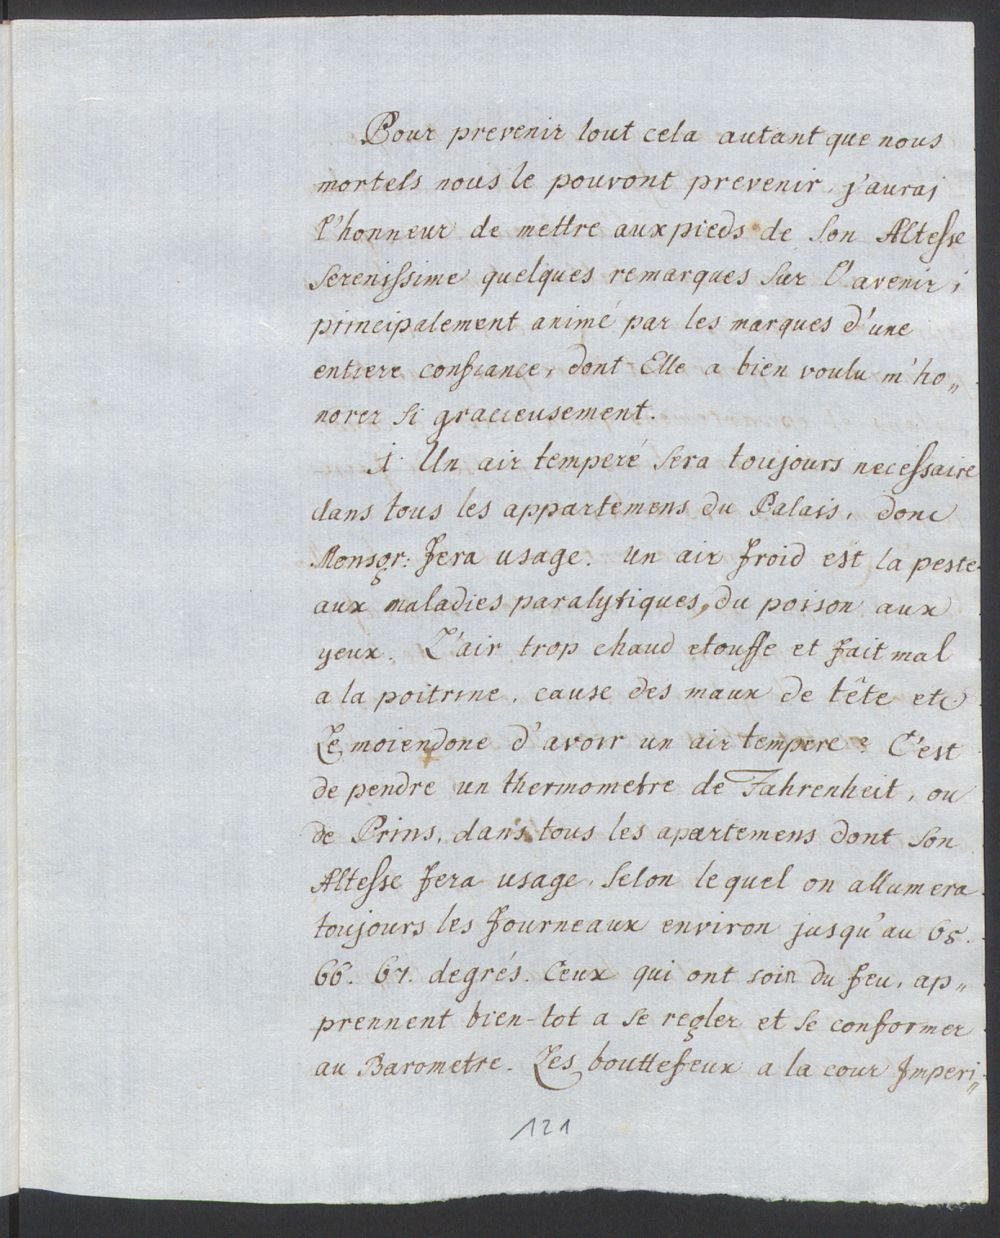 Pour prevenir tout cela autant que nous
mortels nous le pouvont prevenir, j'aurai
l'honneur de mettre aux pieds de Son Altesse
Serenissime quelques remarques sur l'avenir,
principalement animé par les marques d'une
entiere confiance, dont Elle a bien voulu m'ho„
norer si gracieusement.
1. Un air temperé sera toujours necessaire
dans tous les appartemens du Palais, donc
Monsgr: fera usage. un air froid est la peste
aux maladies paralytiques, du poison aux
yeux. L'air trop chaud etouffe et fait mal
a la poitrine, cause des maux de tête etc
Le moiendonc d'avoir un air tempere? C'est
de pendre un thermometre de Fahrenheit, ou
de Prins, dans tous les apartemens dont Son
Altesse fera usage, selon lequel on allumera
toujours les fourneaux environ jusqu'au 65.
66. 67. degrés. Ceux qui ont soin du feu, ap„
prennent bien-tot a se regler et se conformer
au Barometre. Les bouttefeux a la cour Imperi„
121